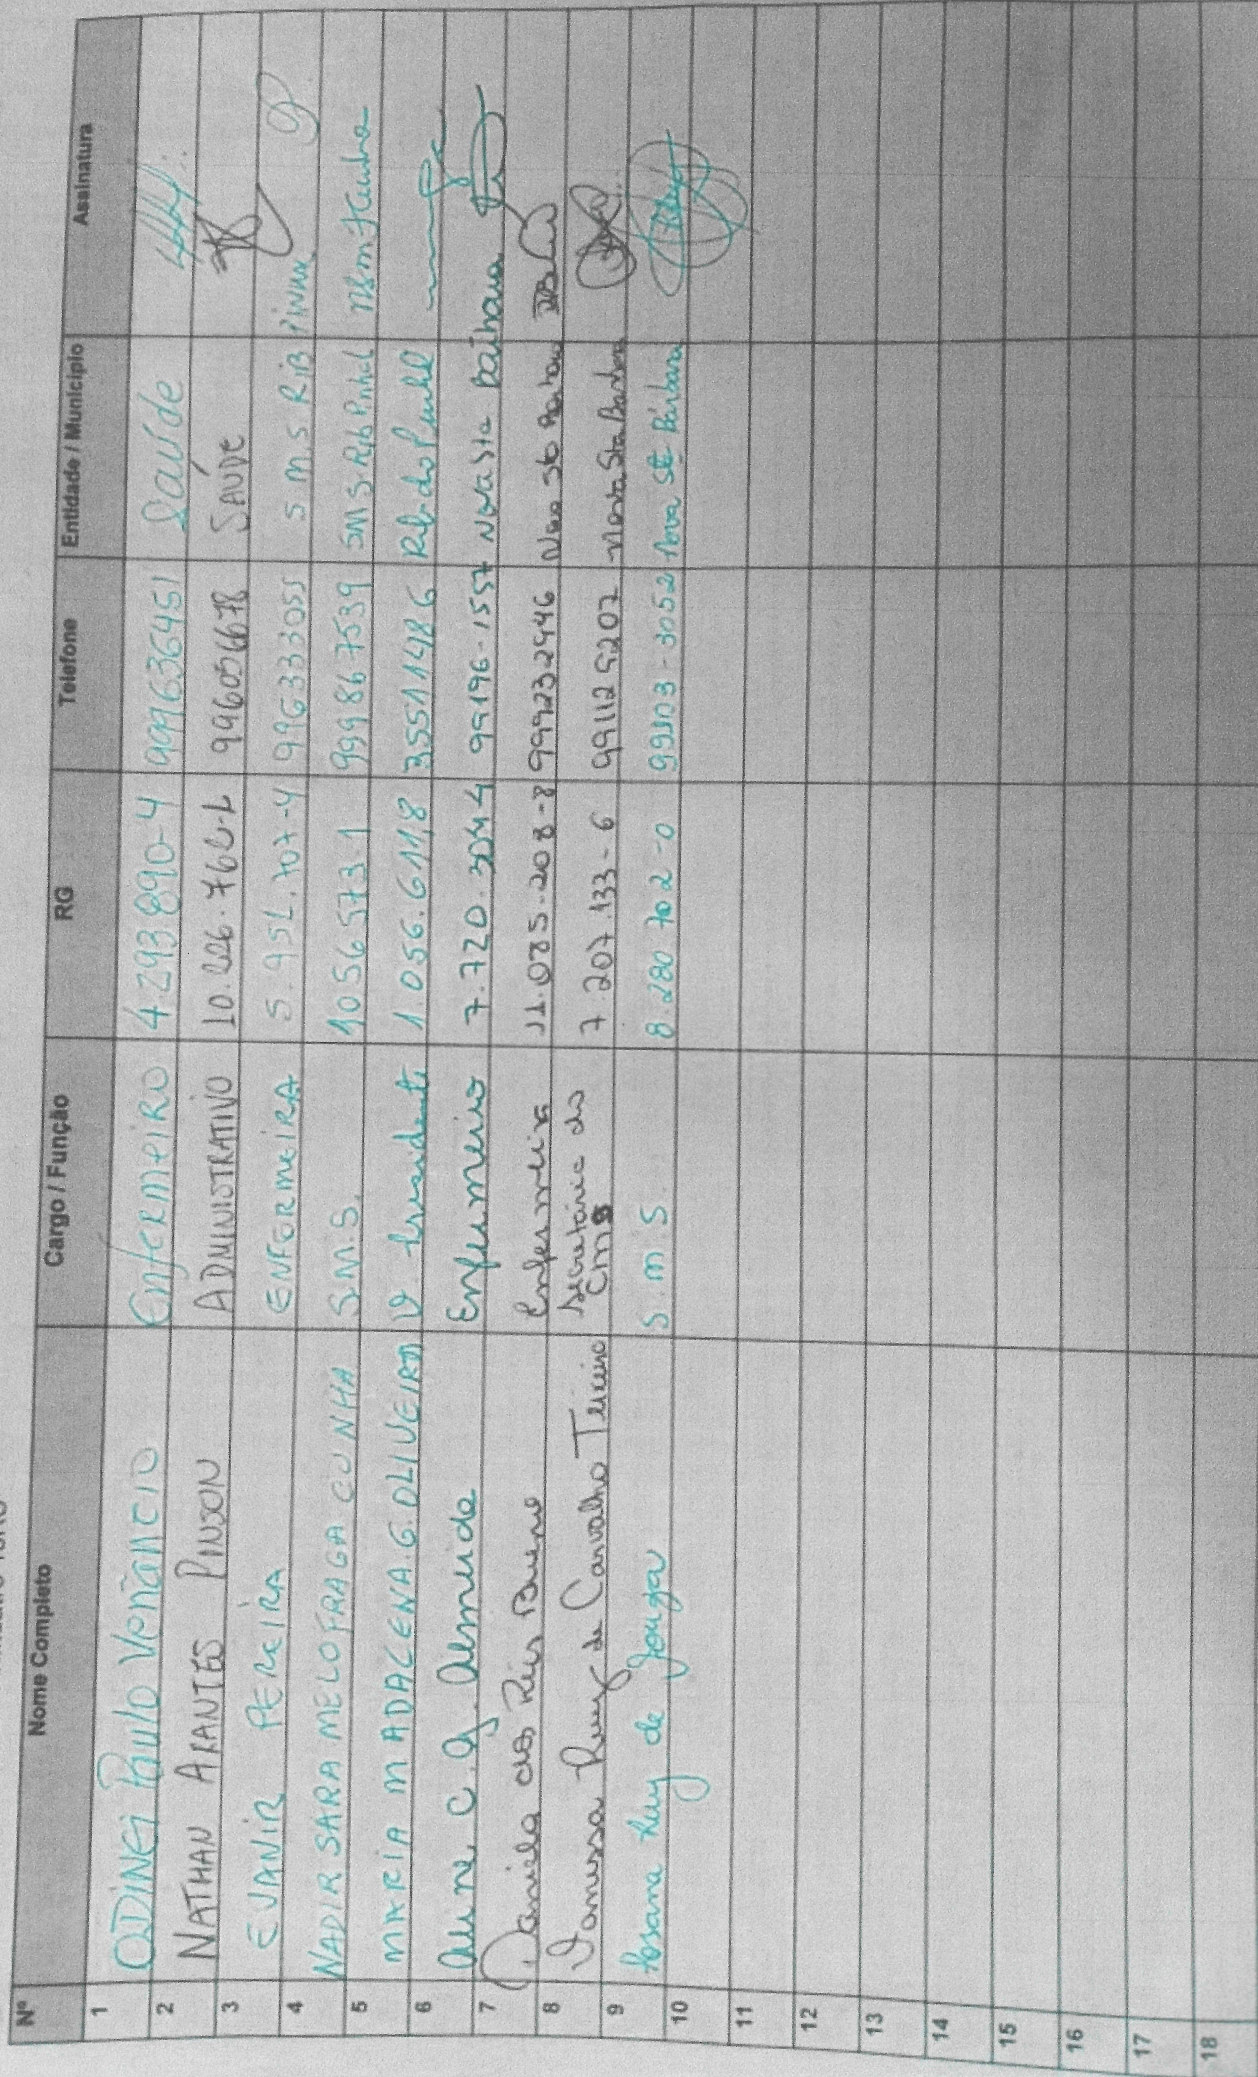 Nº Nome Completo Cargo / Função RG Telefone Entidade / Município Assinatura
1 ODINEI Paulo Venâncio Enfermeiro 4.293.890-4 999636451 Saúde
2 NATHAN ARANTES PINSON ADMINISTRATIVO 996056678 SAÚDE
3 EVANIR PEREIRA ENFERMEIRA 5.951.707-4 996333055 S M.S RIB PINHAL
4 NADIR SARA MELO FRAGA CUNHA S.M.S. 1056573.1 999867539 SMS. Rib Pinhal NSMFCunha
5 MARIA MADALENA.G.OLIVEIRA 1.056.611,8 35511486 Rib. do Pinhal
6 Aline C. G. Almeida Enfermeiro 7.720.304-4 99196-1557 Nova Sta Bárbara
7 Daniela dos Reis Bueno Enfermeira 11.085.208-8 999232946 Nova Sta Barbara
8 Vanessa Ruy de Carvalho Teixeira Secretária do CMS 7.207.133-6 991129202 Nova Sta Barbara
9 Rosana Ruy de Souza S.M.S. 8.280.702-0 99103-3052 Nova Stª Bárbara
10
11
12
13
14
15
16
17
18